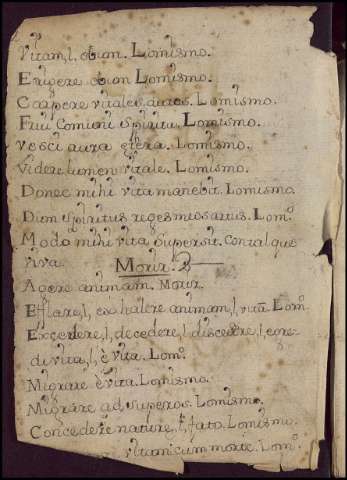 Vitam, l, etium. Lomismo.
Erigere etium Lomismo.
Carpere vitales auras. Lomismo.
Frui Comuni Spiritu. Lomismo.
Vesci aura etherea. Lomismo.
Videre lumen vitale. Lomismo.
Donec mihi vita manebit. Lomismo
Dum Spiritus reget meos artus. Lomº
Modo mihi vita Supersit. Contal que
viva. Morir.
Agere animam. Morir.
Efflare, l, exhalere animam, l, vitã Lomº
Excedere, l, decedere, l, discedere, l,
di vita, l, è vita. Lomº.
Migrare è vita. Lomismo.
Migrare ad superos. Lomismo.
Concedere nature, l, fato. Lomismo.
vitam cum morte. Lomº.